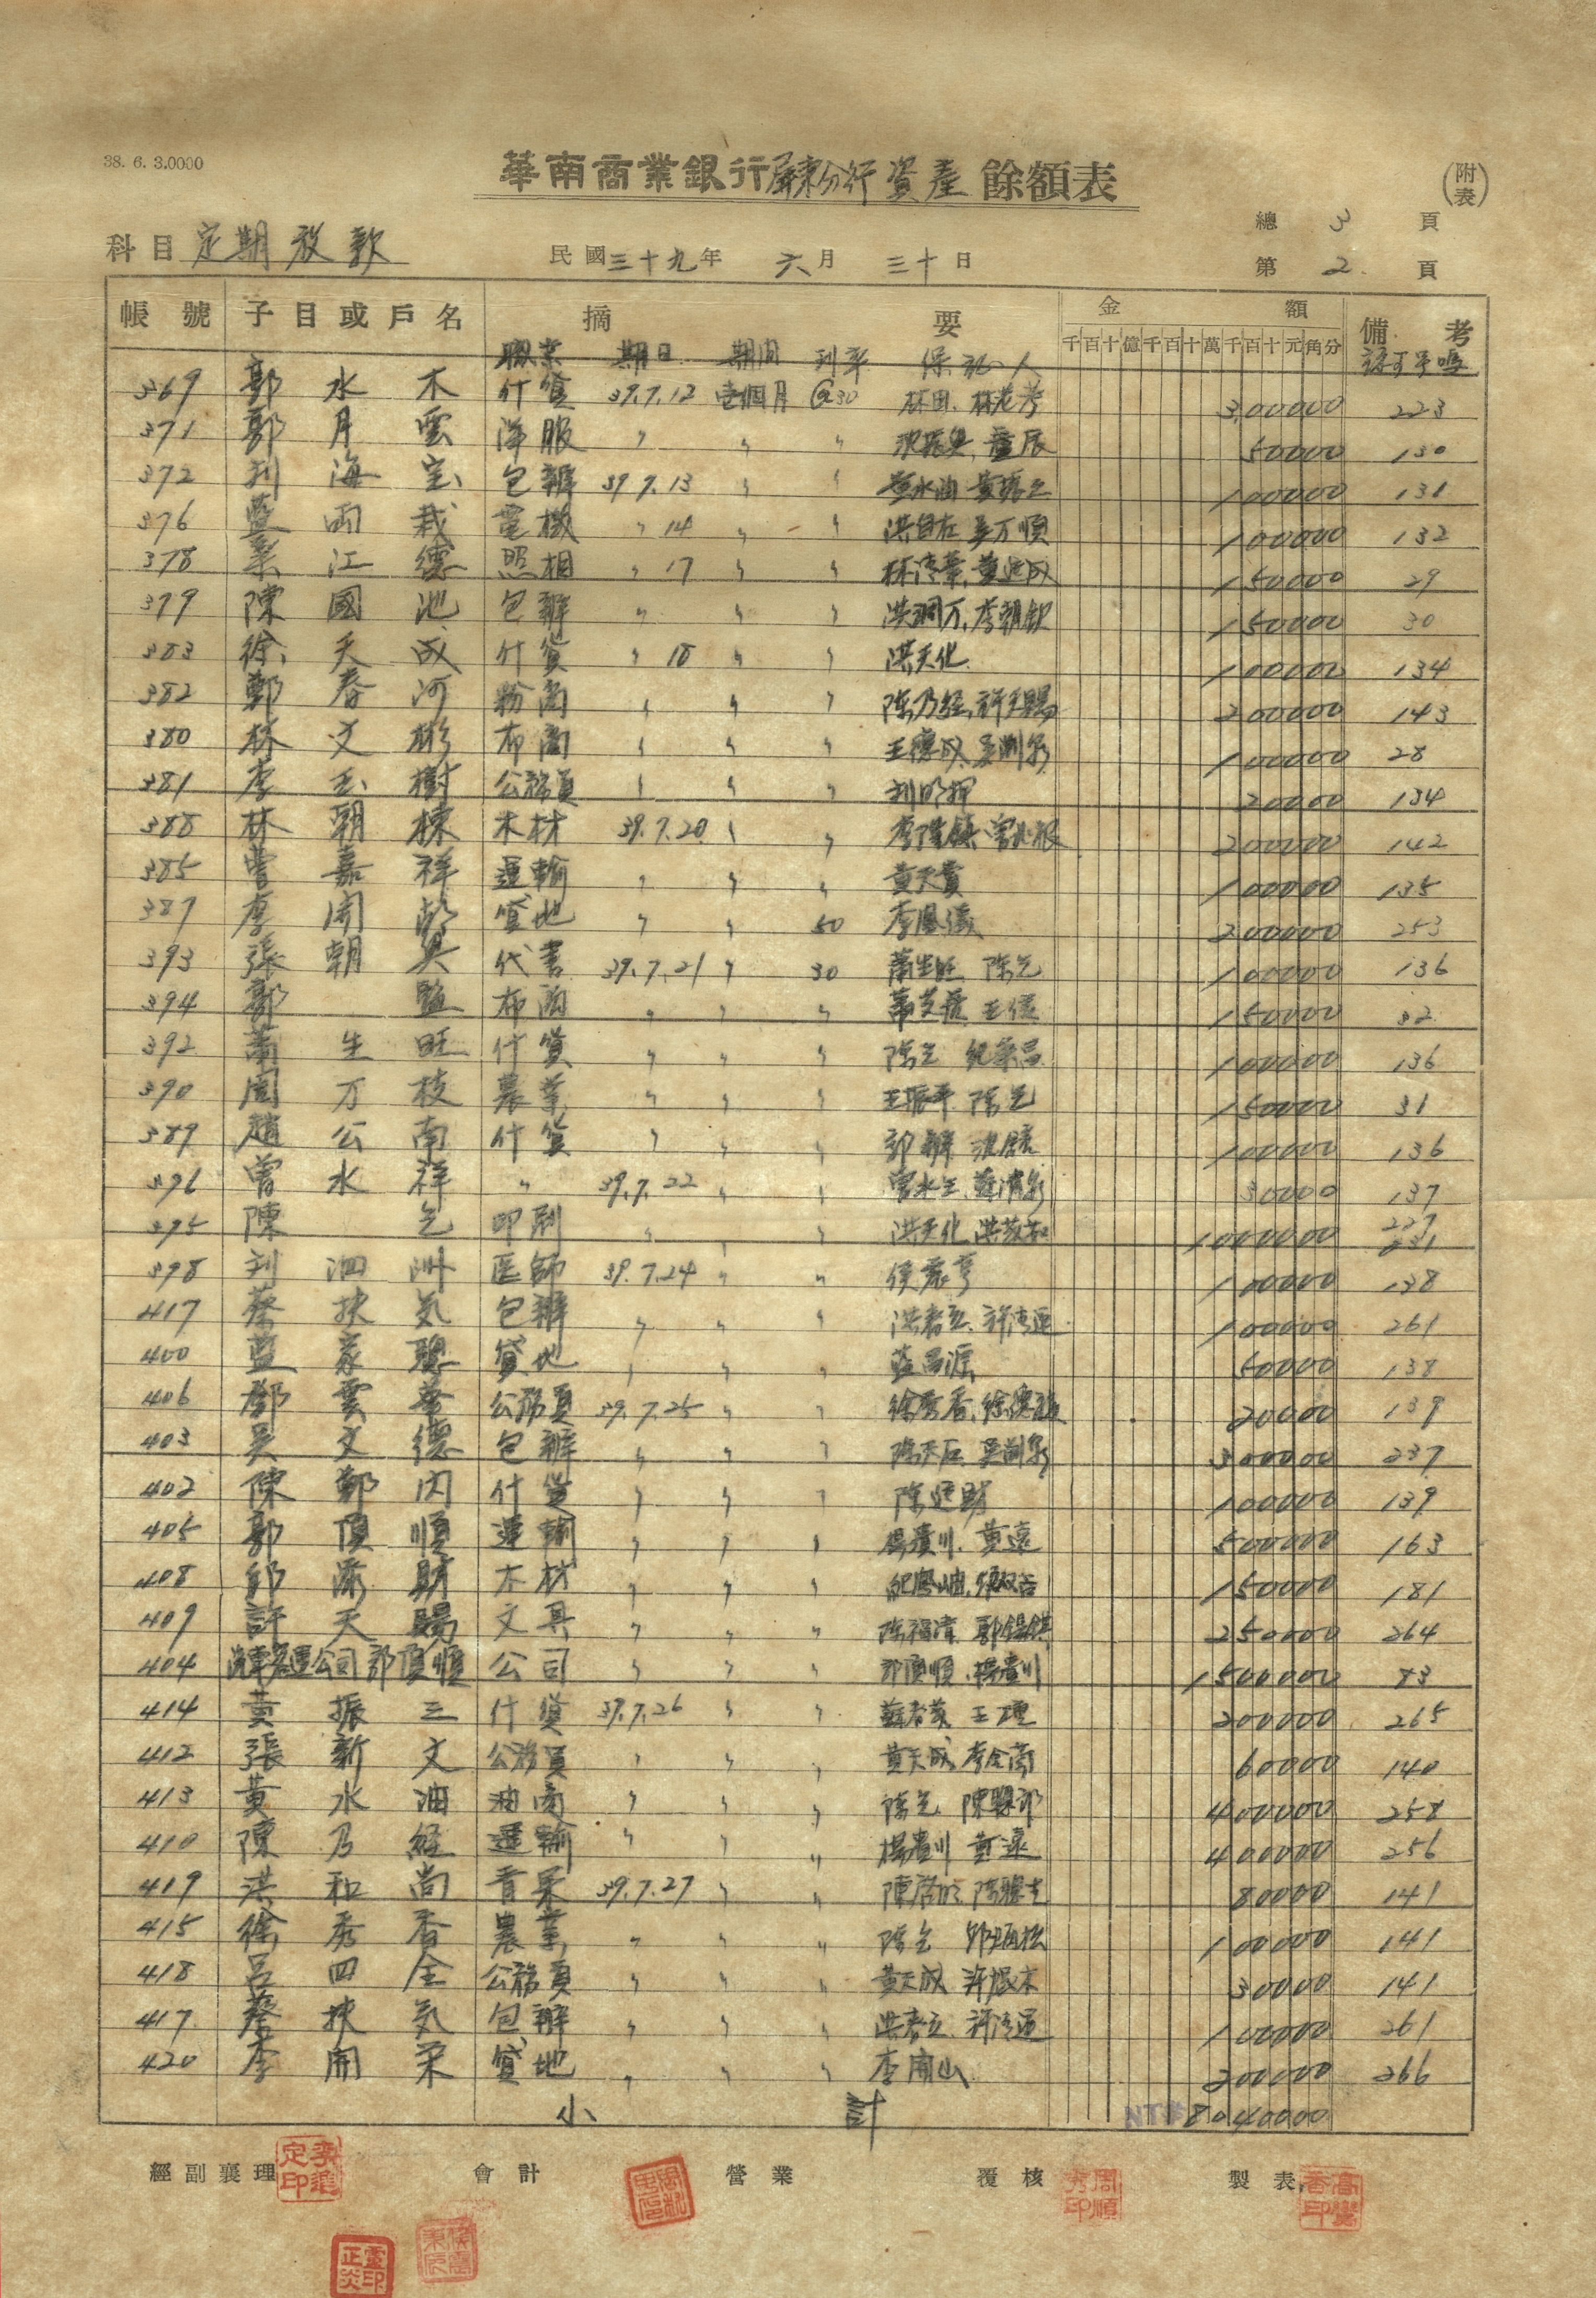 38. 6. 3.0000
華南商業銀行屏東分行資產餘額表
(附表)
總 3 頁
科目 定期放款 民國三十九年 六月 三十日
第 2 頁
帳號 子目或戶名 摘要 金額 備考
千百十億千百十萬千百十元角分
職業 期日 期間 利率 保証人 許可番号
369 郭水木 什貨 39.7.12 壱個月 @30 林田、 300000 223
371 郭月雲 洋服 〃 〃 〃 50000 130
372 刘海宝 包辦 39.7.13 〃 〃 黄水油 100000 131
376 藍雨栽 電機 〃 14 〃 〃 洪自在 吴万順 100000 132
378 葉江德 照相 〃 17 〃 〃 林清華、 150000 29
379 陳國池 包辦 〃 〃 〃 洪調万、李朝欽 150000 30
383 徐天成 什貨 〃 18 〃 〃 洪天化 100000 134
382 鄭春河 粉商 〃 〃 〃 陳乃経、許天賜 200000 143
380 林文彬 布商 〃 〃 〃 王德成、吴渊泉 100000 28
381 李玉樹 公務員 〃 〃 〃 刘明輝 20000 134
388 林朝棟 木材 39.7.20 〃 〃 200000 142
385 曽嘉祥 運輸 〃 〃 〃 黄天貴 100000 135
387 李開 貸地 〃 〃 50 李鳳儀 200000 253
393 張朝興 代書 39.7.21 〃 30 蕭生旺 陳乞 100000 136
394 郭盬 布商 〃 〃 〃 150000 32
392 蕭生旺 什貨 〃 〃 〃 陳乞 100000 136
390 周万枝 農業 〃 〃 〃 王振平 陳乞 150000 31
389 趙公南 什貨 〃 〃 〃 100000 136
396 曽水祥 〃 39.7.22 〃 〃 曽水生、蘇清泉 30000 137
395 陳乞 印刷 〃 〃 〃 洪天化 1000000 227 231
398 刘泗洲 医師 39.7.24 〃 〃 100000 138
417 蔡扶気 包辦 〃 〃 〃 洪春立、許清運 100000 261
400 藍家聰 貸地 〃 〃 〃 藍昌源 50000 138
406 鄧雲 公務員 39.7.25 〃 〃 徐秀香、 20000 139
403 吴文德 包辦 〃 〃 〃 陳天応 吴渊泉 300000 237
402 陳鄭肉 什貨 〃 〃 〃 陳廷財 100000 139
405 郭頂順 運輸 〃 〃 〃 楊貴川、黄遠 500000 163
408 郭添財 木材 〃 〃 〃 150000 181
409 許天賜 文具 〃 〃 〃 陳福濱 郭錫錤 250000 264
404 公司郭頂順 公司 〃 〃 〃 郭頂順、楊貴川 1500000 83
414 黄振三 什貨 39.7.26 〃 〃 200000 265
412 張新文 公務員 〃 〃 〃 黄天成 李全商 60000 140
413 黄水油 油商 〃 〃 〃 陳乞 400000 258
410 陳乃経 運輸 〃 〃 〃 楊貴川 黄遠 400000 256
419 洪和尚 青果 39.7.27 〃 〃 80000 141
415 徐秀香 農業 〃 〃 〃 陳乞 100000 141
418 呂四全 公務員 〃 〃 〃 黄天成 許振木 30000 141
417 蔡扶気 包辦 〃 〃 〃 洪春立、許清運 100000 261
420 李開 貸地 〃 〃 〃 李南山 200000 266
小計 NT$ 8040000
經副襄理 會計 營業 覆核 製表